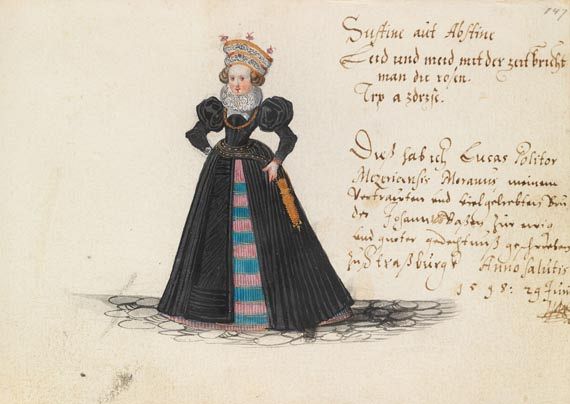 147
Sustine aut Abstine
Leid und meid mit der zeit bricht
man die rosen.
Trp a zdrzse.
Dis hab ich Lucas Politor
Mezericensis Moravus meinem
vertrauten und vielgeliebten Bru
der Johann zur ewig
und guter gedechtnus geschrieben
zu Straßburgk Anno salutis
1598: 29 Juni